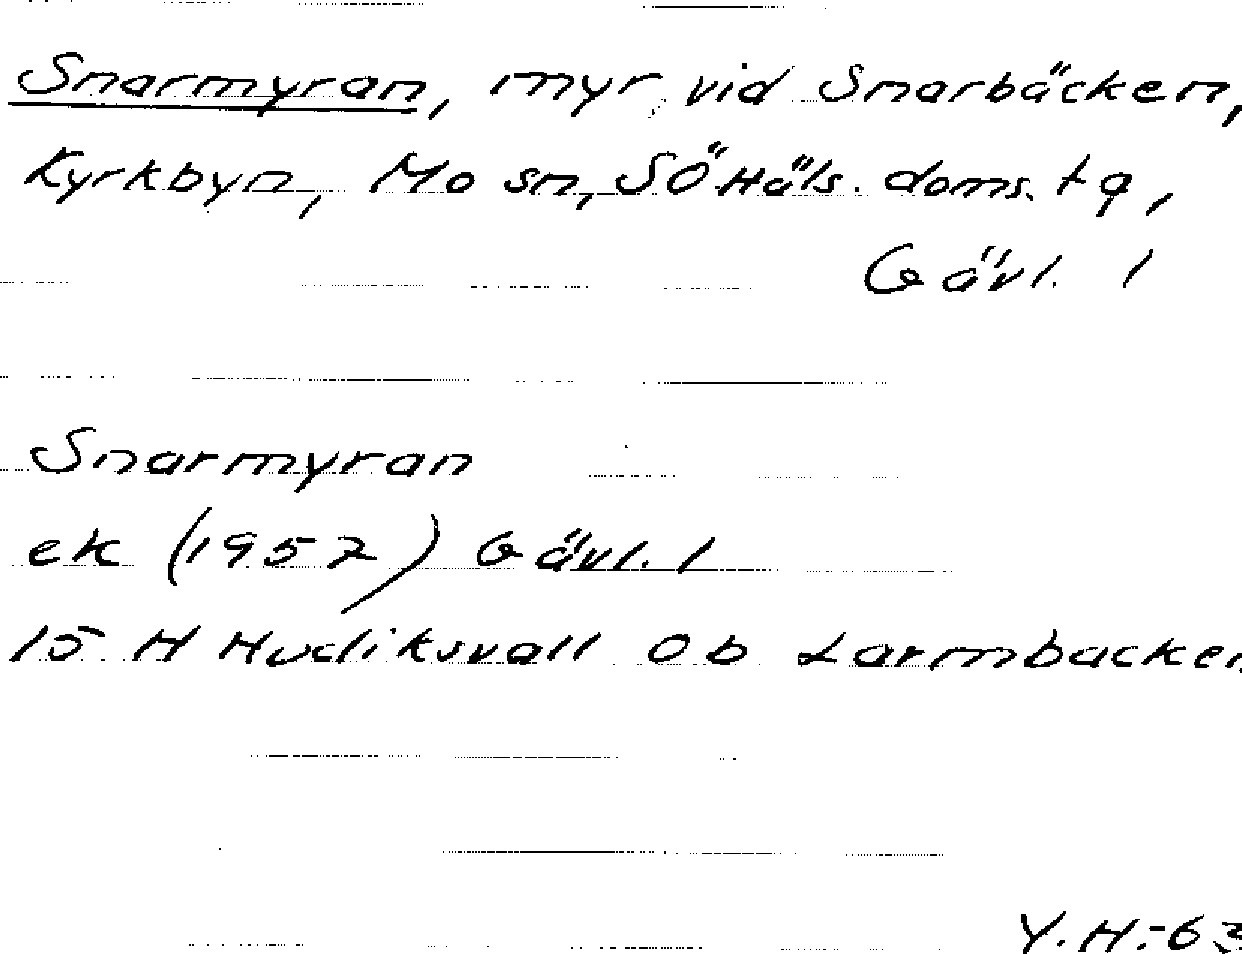 Snarmyran, myr, vid Snarbäcken,
Kyrkbyn, Mo sn, SÖ Häls. doms. tg,
Gävl. l
Snarmyran
ek (1957) Gävl. l
15 H Hudiksvall 0 b Larmbacken
Y.H.-63